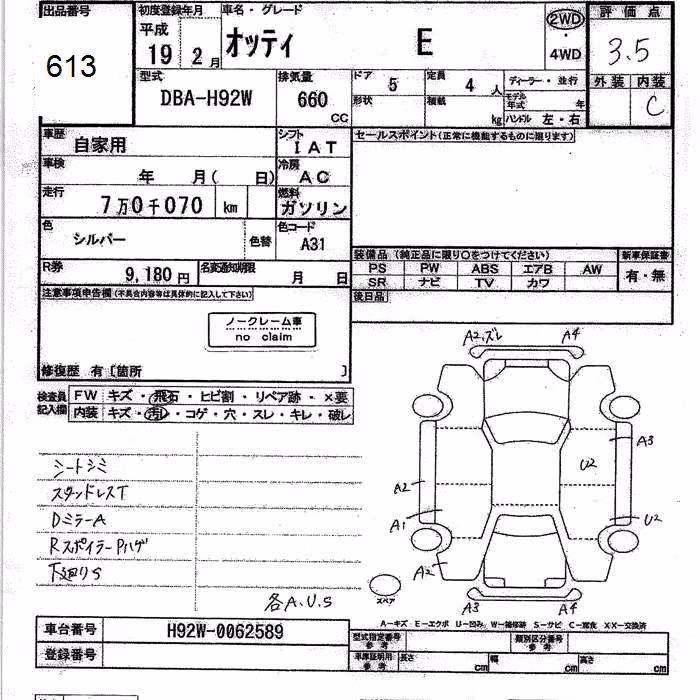 出品番号 初度登録年月 車名・グレード 評価点
613
平成 19 2月 オッティ E 2WD・4WD 3.5
型式 排気量 ドア 定員 ディーラー・並行 外装 内装
DBA-H92W 660 CC 5 4人
形状 積載 kg モデル年式 年 ハンドル 左・右 C
車歴 自家用 シフト IAT セールスポイント(正常に機能するものに限ります)
車検 年 月( 日) 冷房 AC
走行 7万0千070 km 燃料 ガソリン
色 シルバー 色替 色コード A31
R券 9,180円 名変通知期限 月 日
装備品 (純正品に限り○をつけてください) 新車保証書
PS PW ABS エアB AW 有・無
SR ナビ TV カワ
後日品
注意事項申告欄(不具合内容等は具体的に記入して下さい)
ノークレーム車
no claim
修復歴 有〔箇所 〕
検査員記入欄 FW キズ・飛石・ヒビ割・リペア跡・×要
内装 キズ・汚レ・コゲ・穴・スレ・キレ・破レ
シートシミ
スタッドレスT
DミラーA
RスポイラーPハゲ
下廻りS
各A.U.S
A2,ズレ A4
A3
U2
A2
A1 U2
A2
A3 A4
スペア
A-キズ E-エクボ U-凹み W-補修跡 S-サビ C-腐食 XX-交換済
車台番号 H92W-0062589
登録番号
型式指定番号 参考 類別区分番号 参考
車庫証明用 参考 長さ cm 幅 cm 高さ cm